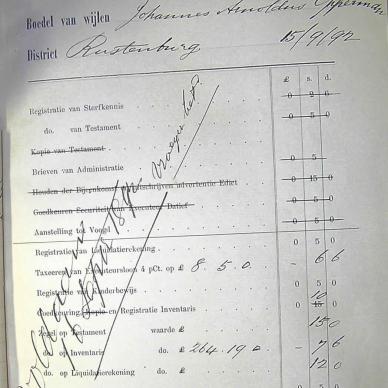 Boedel van wijlen Johannes Arnoldus Opperman
District Rustenburg 15/9/92
£ s. d.
Registratie van Sterfkennis 0 2 6
do. van Testament 0 5 0
Kopie van Testament
Brieven van Administratie 0 5
Houden der Bijeenkomst schrijven advertentie Edict 0 15 0
Goedkeuren Securiteit van Executeur Datief 0 5 0
Aanstelling tot Voogd 0 5 0
Registratie van Likwidatierekening 0 5 0
Taxeeren van Executeursloon 4 pCt. op £ 8.5.0. - 6 6
Registratie van Kinderbewijs 0 5 0
Goedkeuring, Kopie en Registratie Inventaris 0 15 0
Zegel op Testament waarde £ 15 0
do. op Inventaris do. £ 264.19.0 - 7 6
do. op Likwidatierekening do. £ 12 0